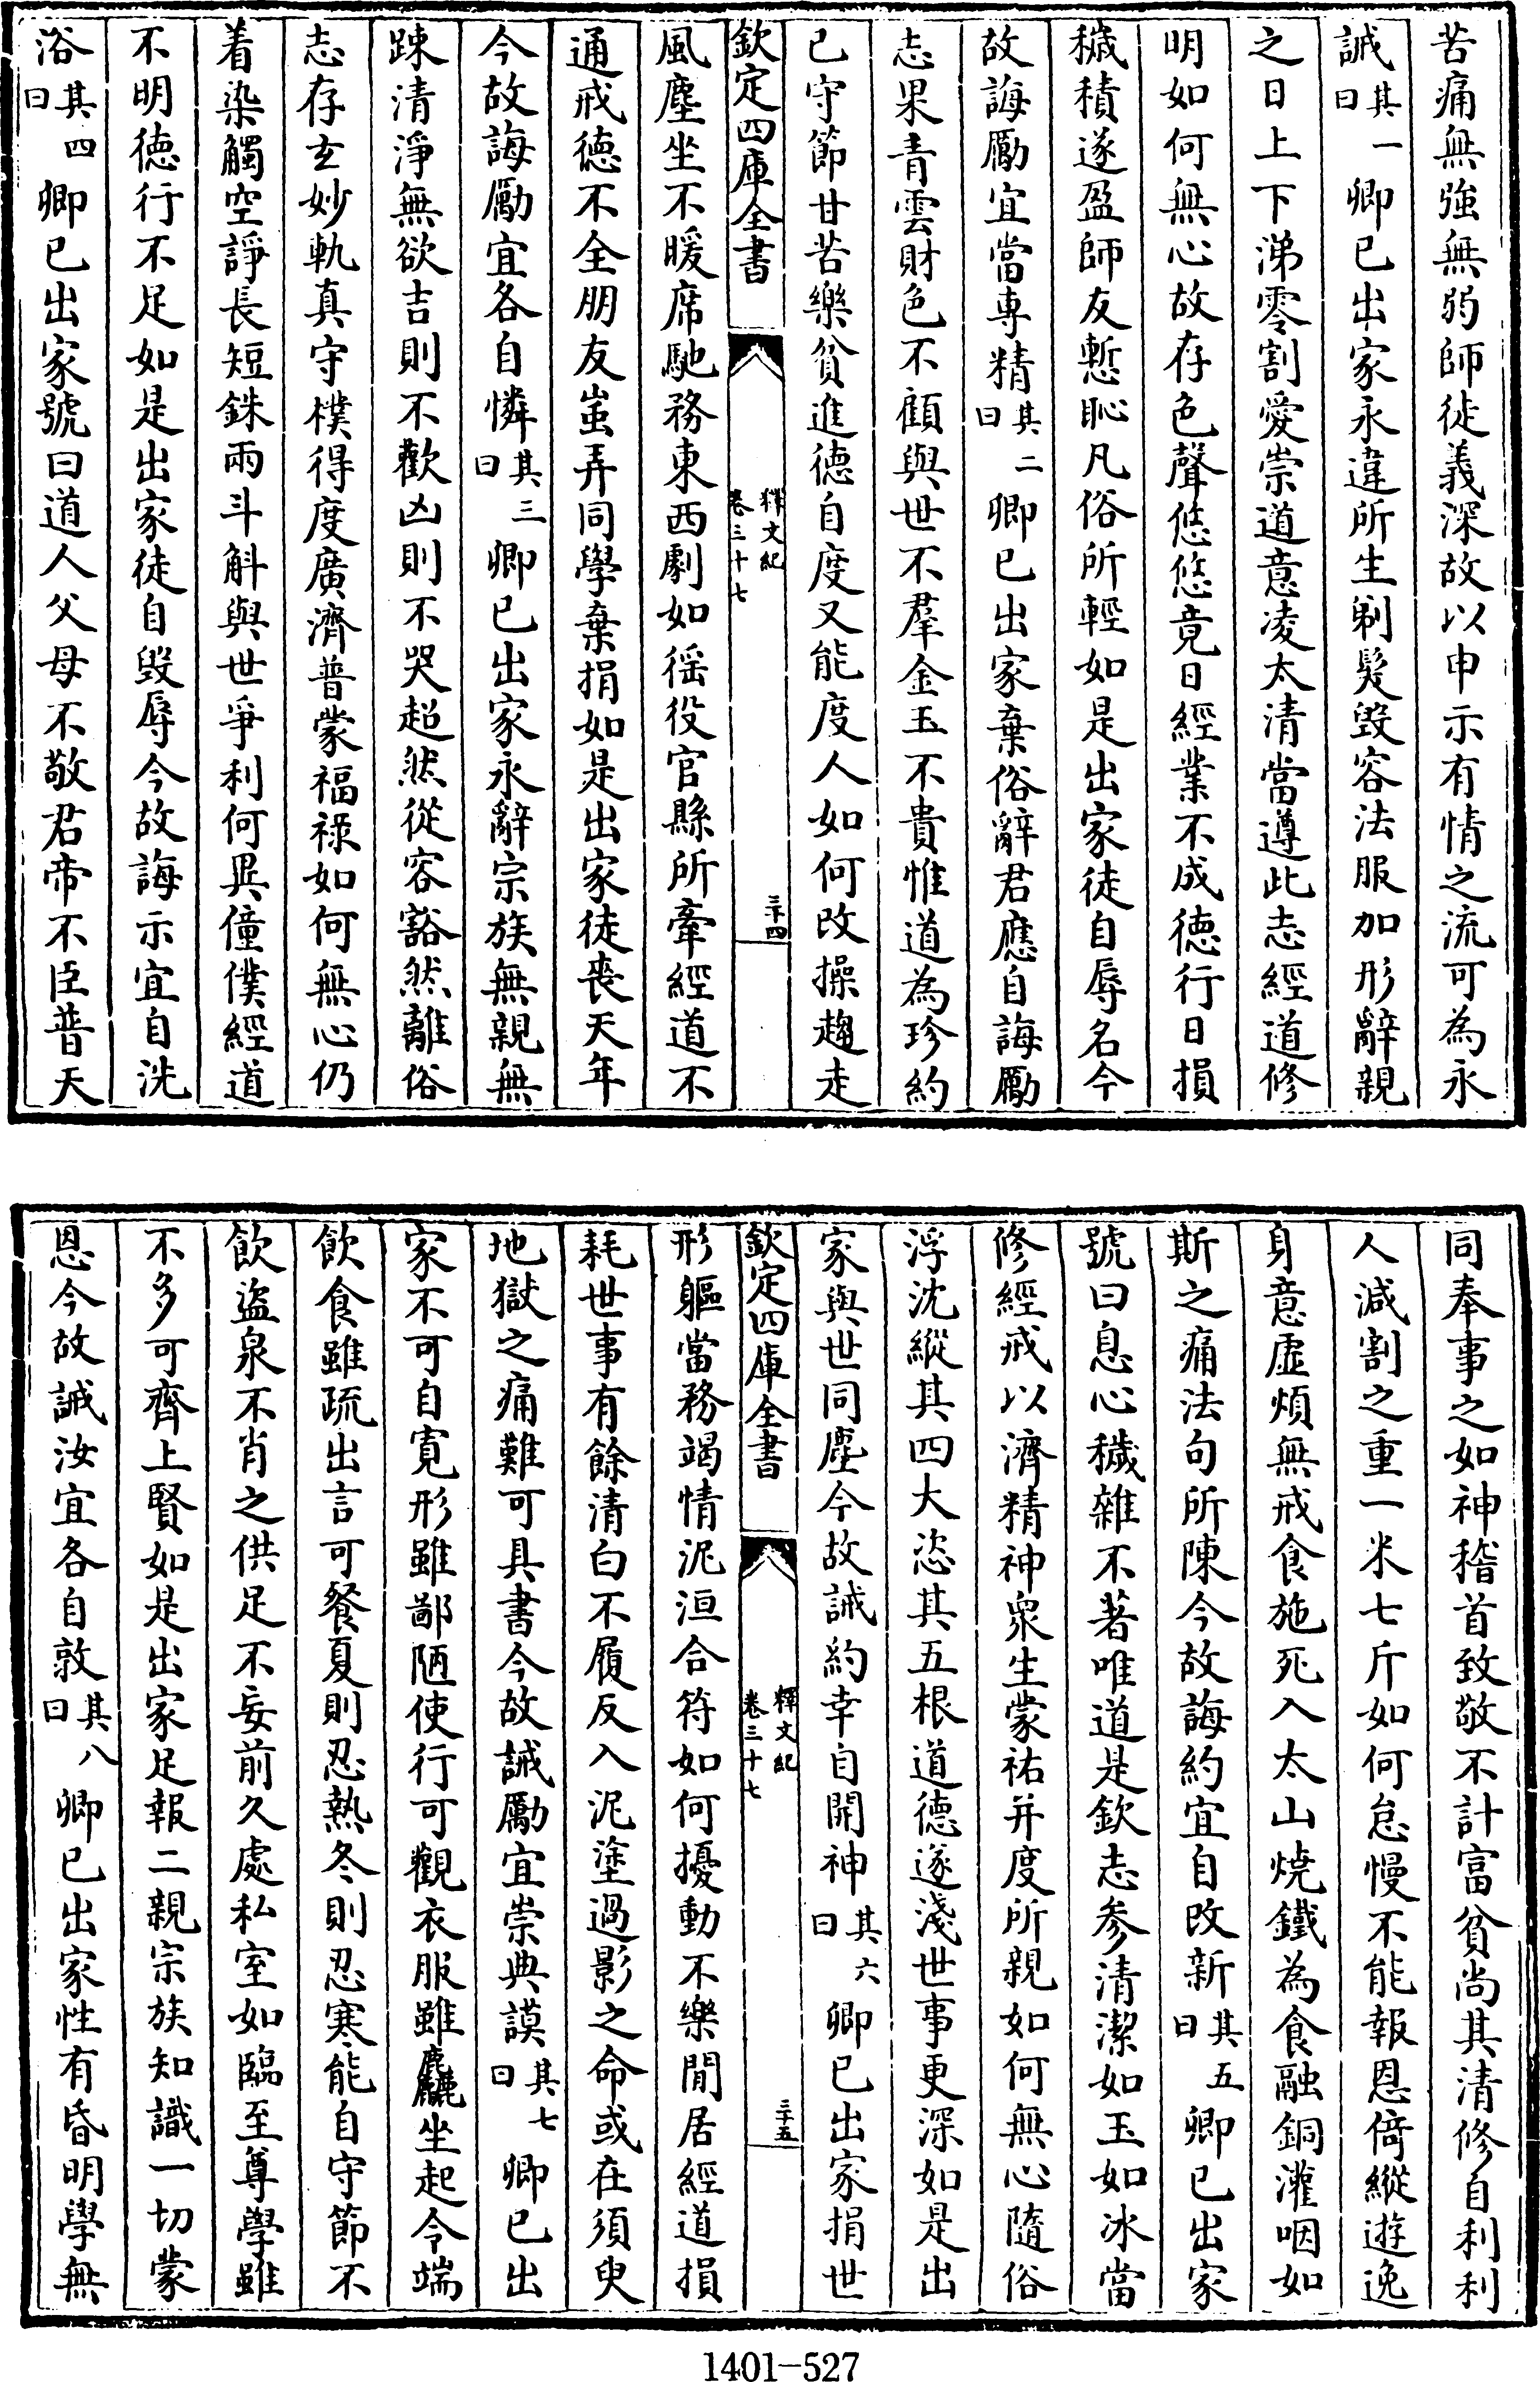 苦痛無強無弱師徒義深故以申示有情之流可為永
誡其一曰卿已出家永違所生剃髮毀容法服加形辭親
之日上下涕零割愛崇道意凌太清當遵此志經道修
明如何無心故存色聲悠悠竟日經業不成徳行日損
穢積遂盈師友慙恥凡俗所輕如是出家徒自辱名今
故誨勵宜當專精其二曰卿已出家棄俗辭君應自誨勵
志果青雲財色不顧與世不羣金玉不貴惟道為珍約
已守節甘苦樂貧進徳自度又能度人如何改操趨走
欽定四庫全書
釋文紀
卷三十七
三十四
風塵坐不暖席馳務東西劇如徭役官縣所牽經道不
通戒徳不全朋友蚩弄同學棄捐如是出家徒喪天年
今故誨勵宜各自憐其三曰卿已出家永辭宗族無親無
踈清淨無欲吉則不歡凶則不哭超然從容豁然離俗
志存玄妙軌真守樸得度廣濟普蒙福祿如何無心仍
着染觸空諍長短銖兩斗斛與世爭利何異僮僕經道
不明徳行不足如是出家徒自毀辱今故誨示宜自洗
浴其四曰卿已出家號曰道人父母不敬君帝不臣普天
同奉事之如神稽首致敬不計富貧尚其清修自利利
人減割之重一米七斤如何怠慢不能報恩倚縱遊逸
身意虛煩無戒食施死入太山燒鐵為食融銅灌咽如
斯之痛法句所陳今故誨約宜自改新其五曰卿已出家
號曰息心穢雜不著唯道是欽志參清潔如玉如冰當
修經戒以濟精神衆生蒙祐并度所親如何無心隨俗
浮沈縱其四大恣其五根道徳遂淺世事更深如是出
家與世同塵今故誡約幸自開神其六曰卿已出家捐世
欽定四庫全書
釋文紀
卷三十七
三十五
形軀當務竭情泥洹合符如何擾動不樂閒居經道損
耗世事有餘清白不履反入泥塗過影之命或在須臾
地獄之痛難可具書今故誡勵宜崇典謨其七曰卿已出
家不可自寛形雖鄙陋使行可觀衣服雖麤坐起令端
飲食雖疏出言可餐夏則忍熱冬則忍寒能自守節不
飲盜泉不肖之供足不妄前久處私室如臨至尊學雖
不多可齊上賢如是出家足報二親宗族知識一切蒙
恩今故誡汝宜各自敦其八曰卿已出家性有昏明學無
1401-527